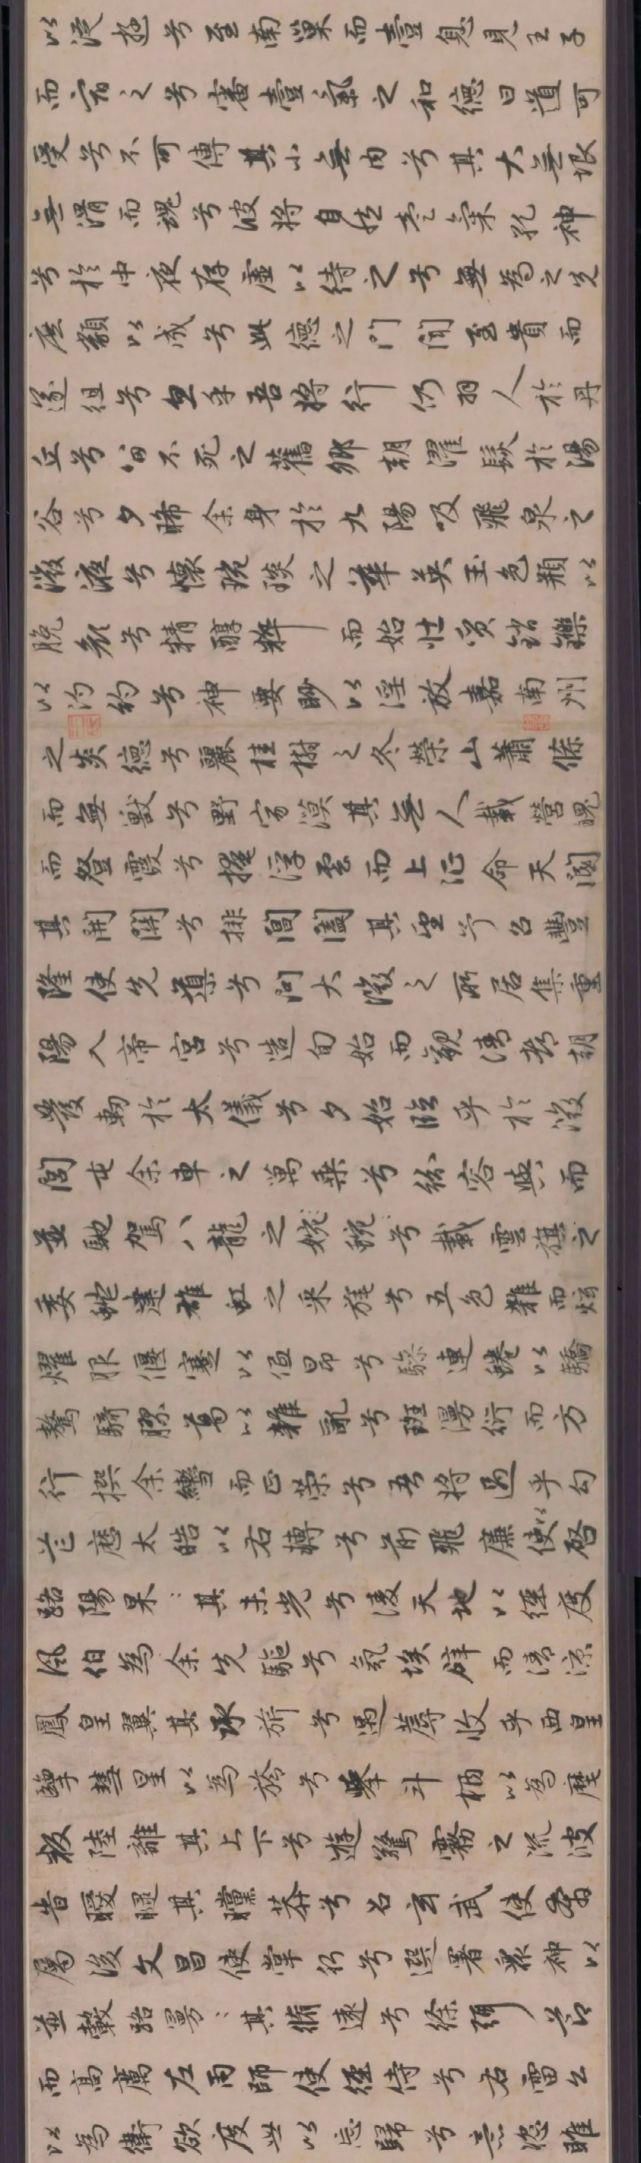 以從遊兮至南巢而壹息見王子
而宿之兮審壹氣之和德曰道可
受兮不可傳其小無內兮其大無垠
無滑而魂兮彼將自然壹氣孔神
兮於中夜存虛以待之兮無為之先
庶類以成兮此德之門聞至貴而
遂徂兮忽乎吾將行仍羽人於丹
丘兮留不死之舊鄉朝濯髮於湯
谷兮夕晞余身於九陽吸飛泉之
微液兮懷琬琰之華英玉色頩以
脕顏兮精醇粹而始壯質銷鑠
以汋約兮神要眇以淫放嘉南州
之炎德兮麗桂樹之冬榮山蕭條
而無獸兮野寂漠其無人載營魄
而登霞兮掩浮雲而上征命天閽
其開關兮排閶闔其望予召豐
隆使先導兮問大微之所居集重
陽入帝宮兮造旬始而觀清都朝
發軔於太儀兮夕始臨乎於微
閭屯余車之萬乘兮紛容與而
並馳駕八龍之婉婉兮載雲旗之
委蛇建雄虹之采旄兮五色雜而炫
耀服偃蹇以低昂兮驂連蜷以驕
驁騎膠葛以雜亂兮斑漫衍而方
行撰余轡而正策兮吾將過乎勾
芒歷太皓以右轉兮前飛廉使以啓
路陽杲〻其未光兮凌天地以徑度
風伯為余先驅兮氛埃辟而清涼
鳳皇翼其承旂兮遇蓐收乎西皇
擥彗星以為旍兮舉斗柄以為麾
叛陸離其上下兮遊驚霧之流波
旹曖曃其曭莽兮召玄武使奔
屬後文昌使掌行兮選署眾神以
並轂路曼〻其脩遠兮徐弭節
而高厲左雨師使徑侍兮右雷公
以為衛欲度世以忘歸兮意恣睢